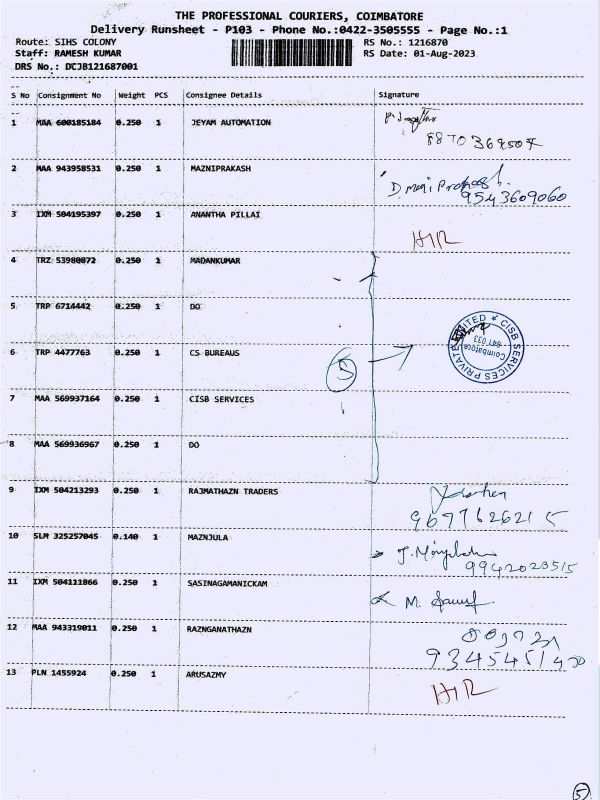 THE PROFESSIONAL COURIERS, COIMBATORE
Delivery Runsheet - P103 - Phone No.:0422-3505555 - Page No.:1
Route: SIHS COLONY RS No.: 1216870
Staff: RAMESH KUMAR RS Date: 01-Aug-2023
DRS No.: DCJB121687001
S No Consignment No Weight PCS Consignee Details Signature
1 MAA 600185184 0.250 1 JEYAM AUTOMATION
2 MAA 943958531 0.250 1 MAZNIPRAKASH
9543609060
3 IXM 504195397 0.250 1 ANANTHA PILLAI
4 TRZ 53980872 0.250 1 MADANKUMAR
5 TRP 6714442 0.250 1 DO
6 TRP 4477763 0.250 1 CS BUREAUS
5
CISB SERVICES PRIVATE LIMITED
Coimbatore
641 033
7 MAA 569937164 0.250 1 CISB SERVICES
8 MAA 569936967 0.250 1 DO
9 IXM 504213293 0.250 1 RAJMATHAZN TRADERS
9697626215
10 SLM 325257045 0.140 1 MAZNJULA
9942023515
11 IXM 504111866 0.250 1 SASINAGAMANICKAM
12 MAA 943319011 0.250 1 RAZNGANATHAZN
13 PLN 1455924 0.250 1 ARUSAZMY
5